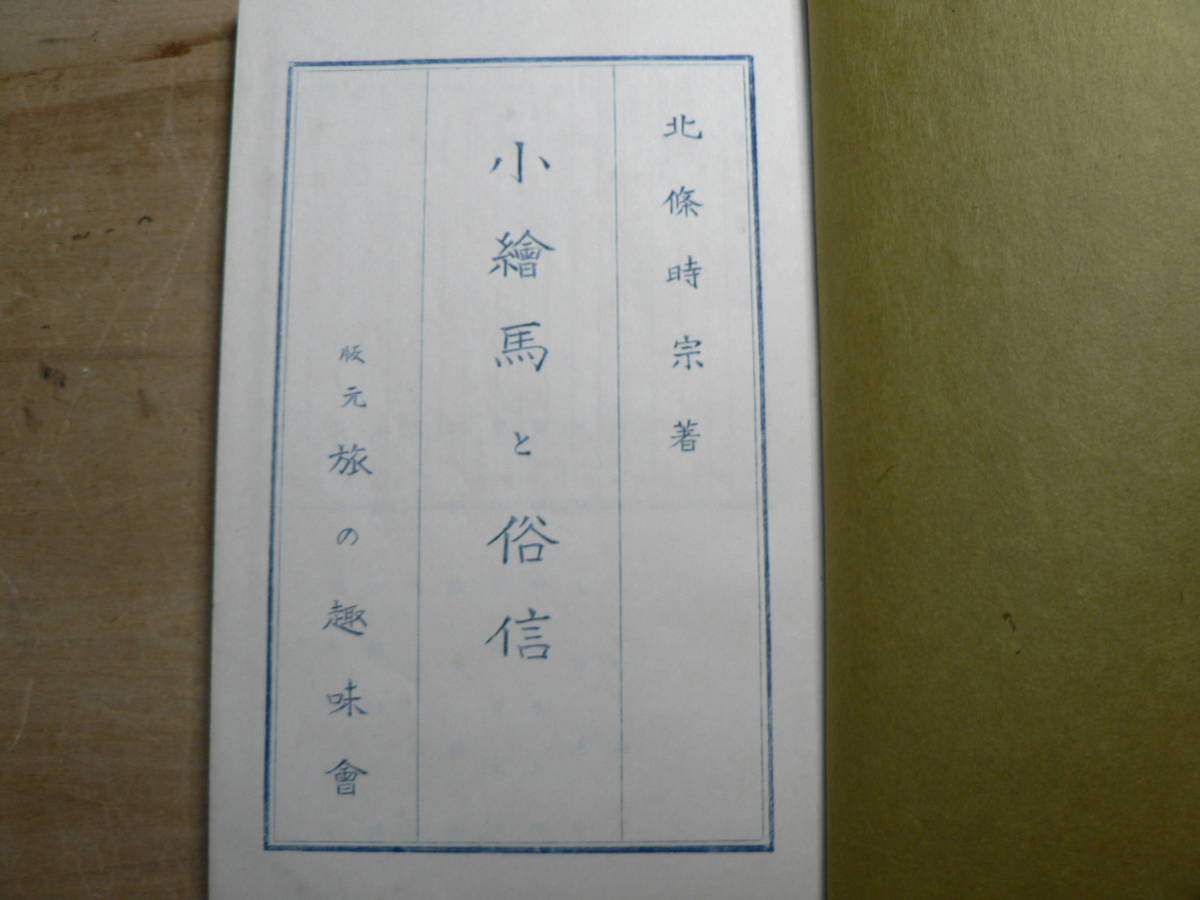 北條時宗著
小繪馬と俗信
版元 旅の趣味會